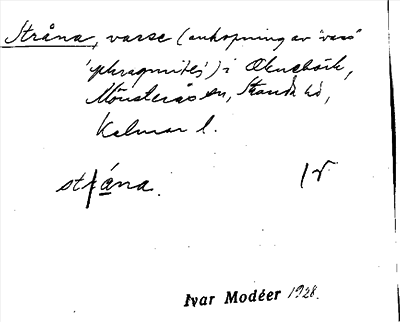 Stråna, varse (anhopning av "vass"
'phragmites') i Oknebäck,
Mönsterås sn, Stranda hd,
Kalmar l.
stråna. IV
Ivar Modéer 1928.